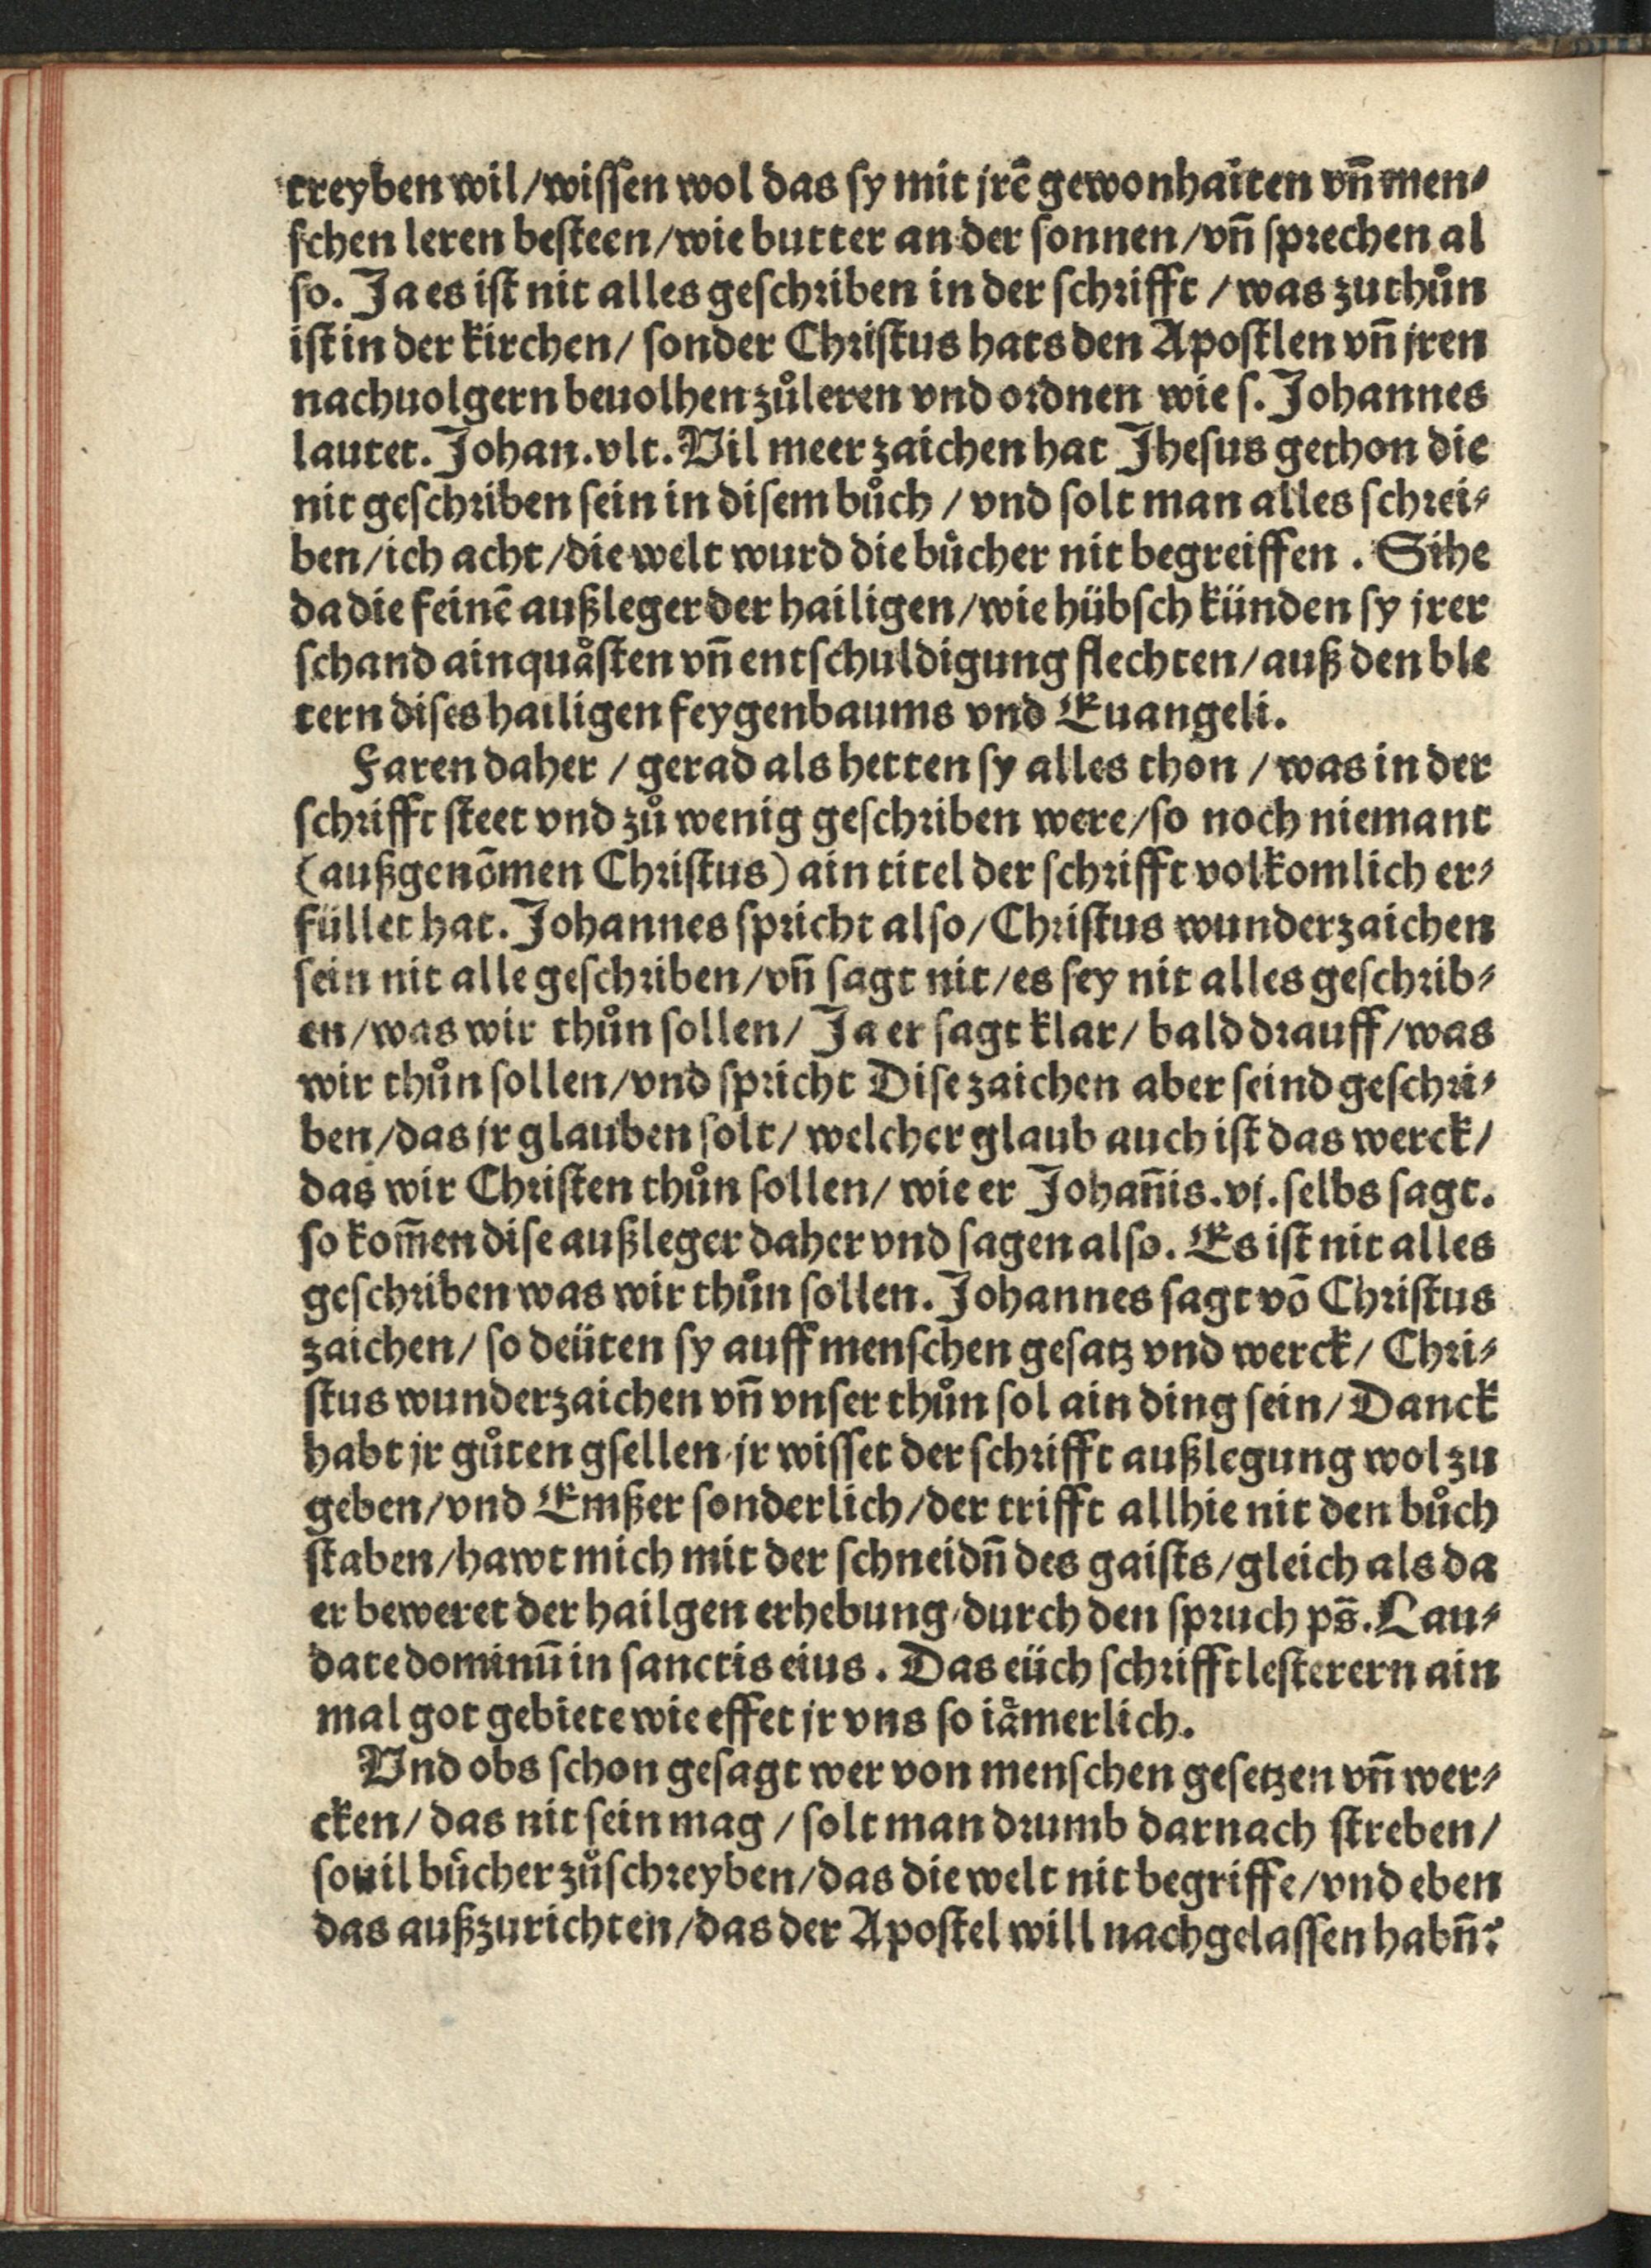 treyben wil/wissen wol das sy mit jrē gewonhaiten vñ men⸗
schen leren besteen/wie butter an der sonnen/vñ sprechen al
so. Ja es ist nit alles geschriben in der schrifft/was zu thůn
ist in der kirchen/sonder Christus hats den Apostlen vñ jren
nachuolgern beuolhen zůleren vnd ordnen wie s. Johannes
lautet. Johan. vlt. Vil meer zaichen hat Jhesus gethon die
nit geschriben sein in disem bůch/vnd solt man alles schrei⸗
ben/ich acht/die welt wurd die bůcher nit begreiffen. Sihe
da die feinē außleger der hailigen/wie hübsch künden sy jrer
schand ain quåsten vñ entschuldigung flechten/auß den ble
tern dises hailigen feygenbaums vnd Euangeli.
Faren daher/gerad als hetten sy alles thon/was in der
schrifft steet vnd zů wenig geschriben were/so noch niemant
(außgenōmen Christus) ain titel der schrifft volkomlich er⸗
füllet hat. Johannes spricht also/Christus wunderzaichen
sein nit alle geschriben/vñ sagt nit/es sey nit alles geschrib⸗
en/was wir thůn sollen/Ja er sagt klar/bald drauff/was
wir thůn sollen/vnd spricht Dise zaichen aber seind geschri⸗
ben/das jr glauben solt/welcher glaub auch ist das werck/
das wir Christen thůn sollen/wie er Johañis. vj. selbs sagt.
so kom̄en dise außleger daher vnd sagen also. Es ist nit alles
geschriben was wir thůn sollen. Johannes sagt vō Christus
zaichen/so deüten sy auff menschen gesatz vnd werck/Chri⸗
stus wunderzaichen vñ vnser thůn sol ain ding sein/Danck
habt jr gůten gsellen/jr wisset der schrifft außlegung wol zu
geben/vnd Emßer sonderlich/der trifft allhie nit den bůch
staben/hawt mich mit der schneidñ des gaists/gleich als da
er beweret der hailgen erhebung/durch den spruch ps̄. Lau⸗
date dominū in sanctis eius. Das eüch schrifftlesterern ain
mal got gebiete wie effet jr vns so iåmerlich.
Vnd obs schon gesagt wer von menschen gesetzen vñ wer⸗
cken/das nit sein mag/solt man drumb darnach streben/
souil bůcher zůschreyben/das die welt nit begriffe/vnd eben
das außzurichten/das der Apostel will nachgelassen habñ?